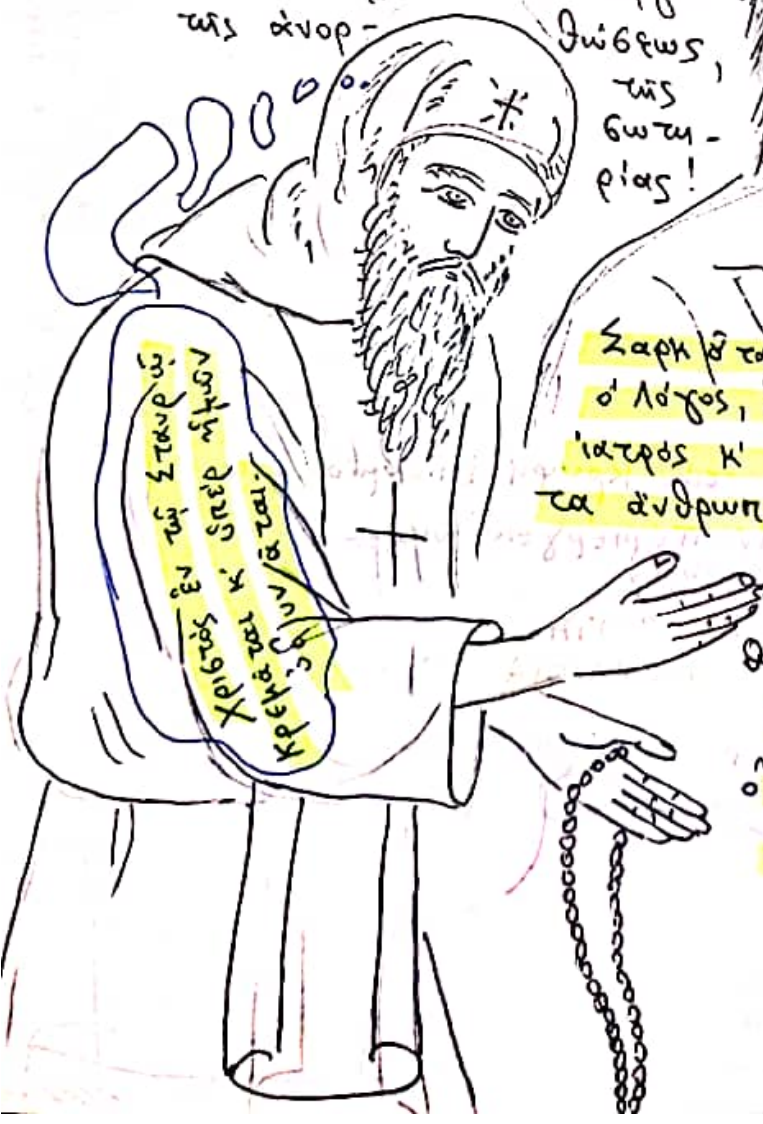 τῆς ἀνορ-
θώσεως,
τῆς
σωτη-
ρίας!
Χριστός ἐν τῷ Σταυρῷ
κρεμᾶται κ' ὑπέρ ἡμῶν
Σαρκ
ὁ Λόγος,
ἰατρός κ'
τα ἀνθρωπ